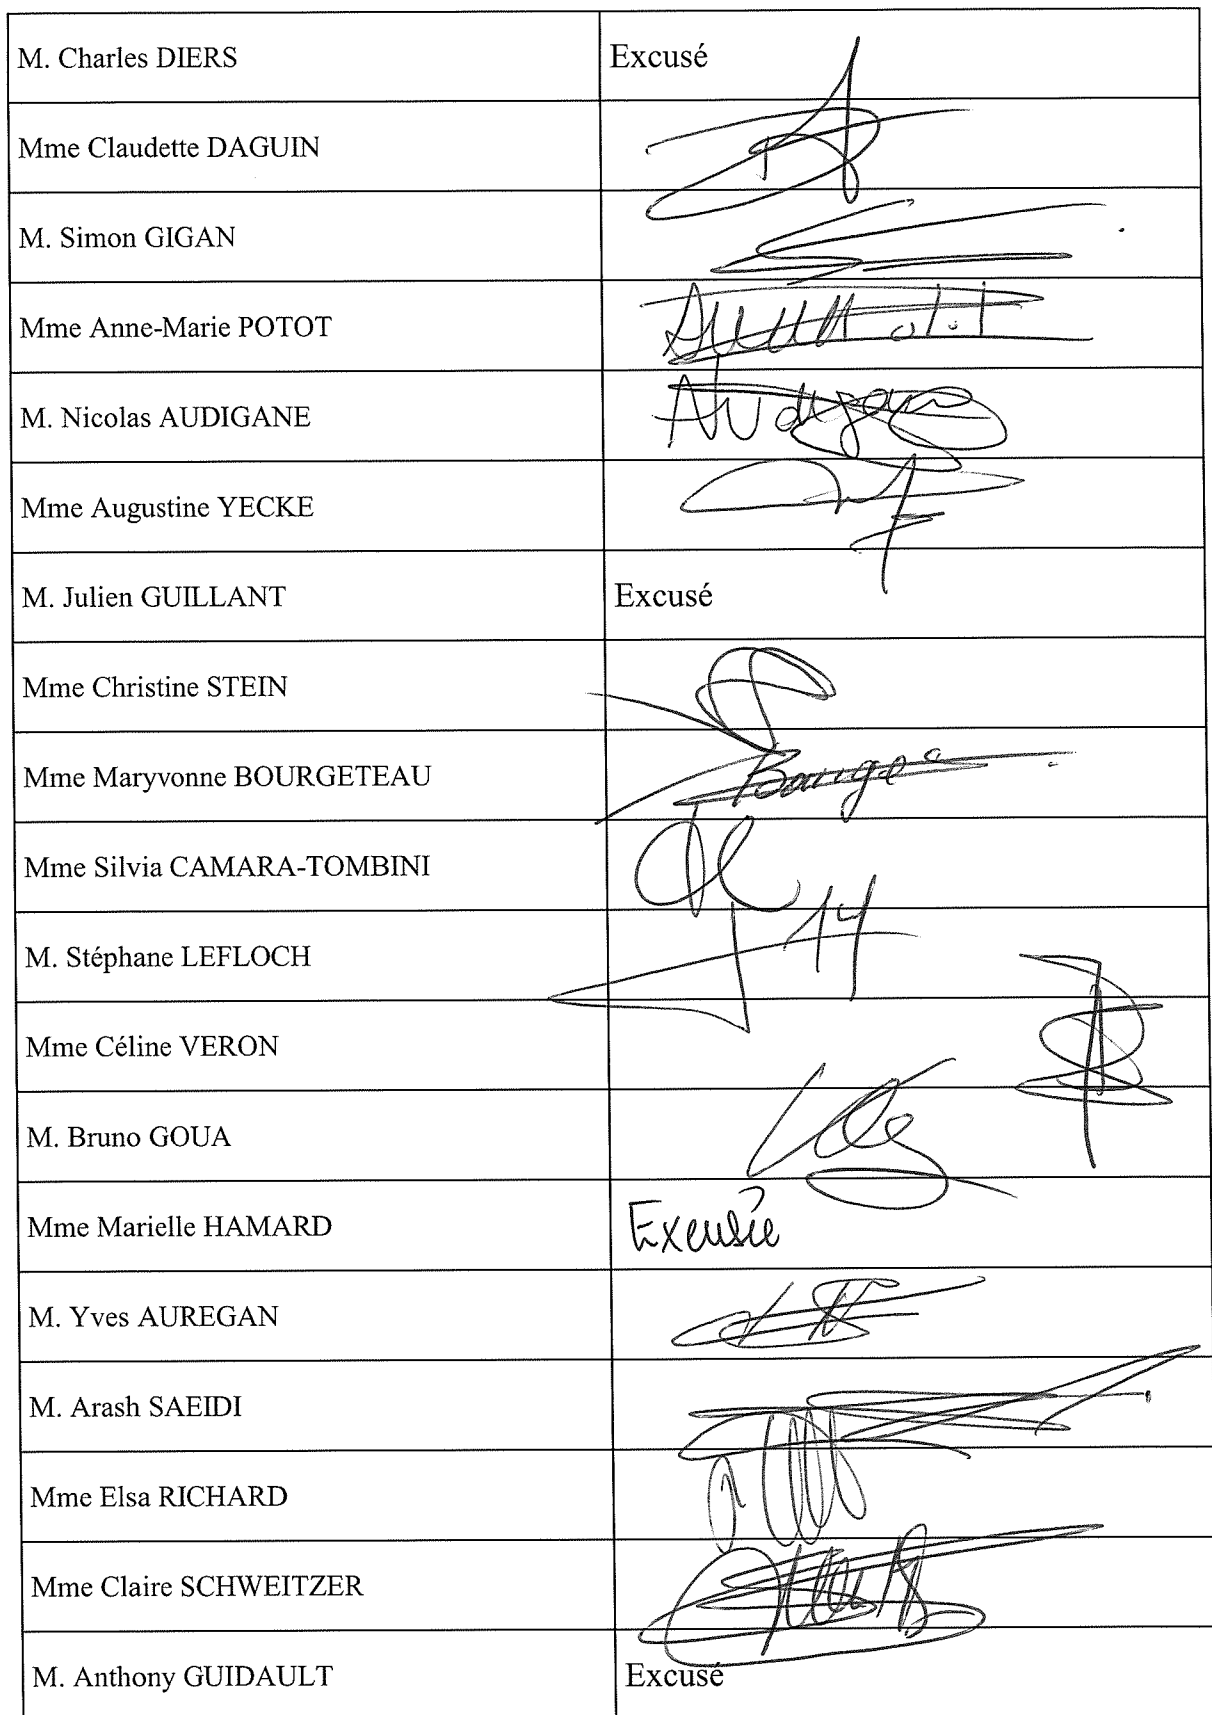 M. Charles DIERS Excusé
Mme Claudette DAGUIN
M. Simon GIGAN
Mme Anne-Marie POTOT
M. Nicolas AUDIGANE Audigane
Mme Augustine YECKE
M. Julien GUILLANT Excusé
Mme Christine STEIN
Mme Maryvonne BOURGETEAU
Mme Silvia CAMARA-TOMBINI
M. Stéphane LEFLOCH
Mme Céline VERON
M. Bruno GOUA
Mme Marielle HAMARD Excusée
M. Yves AUREGAN
M. Arash SAEIDI
Mme Elsa RICHARD
Mme Claire SCHWEITZER
M. Anthony GUIDAULT Excusé